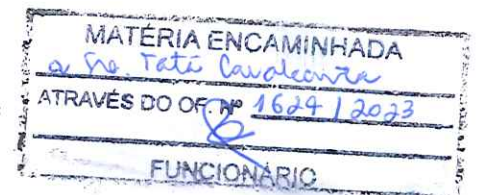 MATÉRIA ENCAMINHADA
a Sra. Tati Cavalcanta
ATRAVÉS DO OF. Nº 1624 / 2023
FUNCIONÁRIO